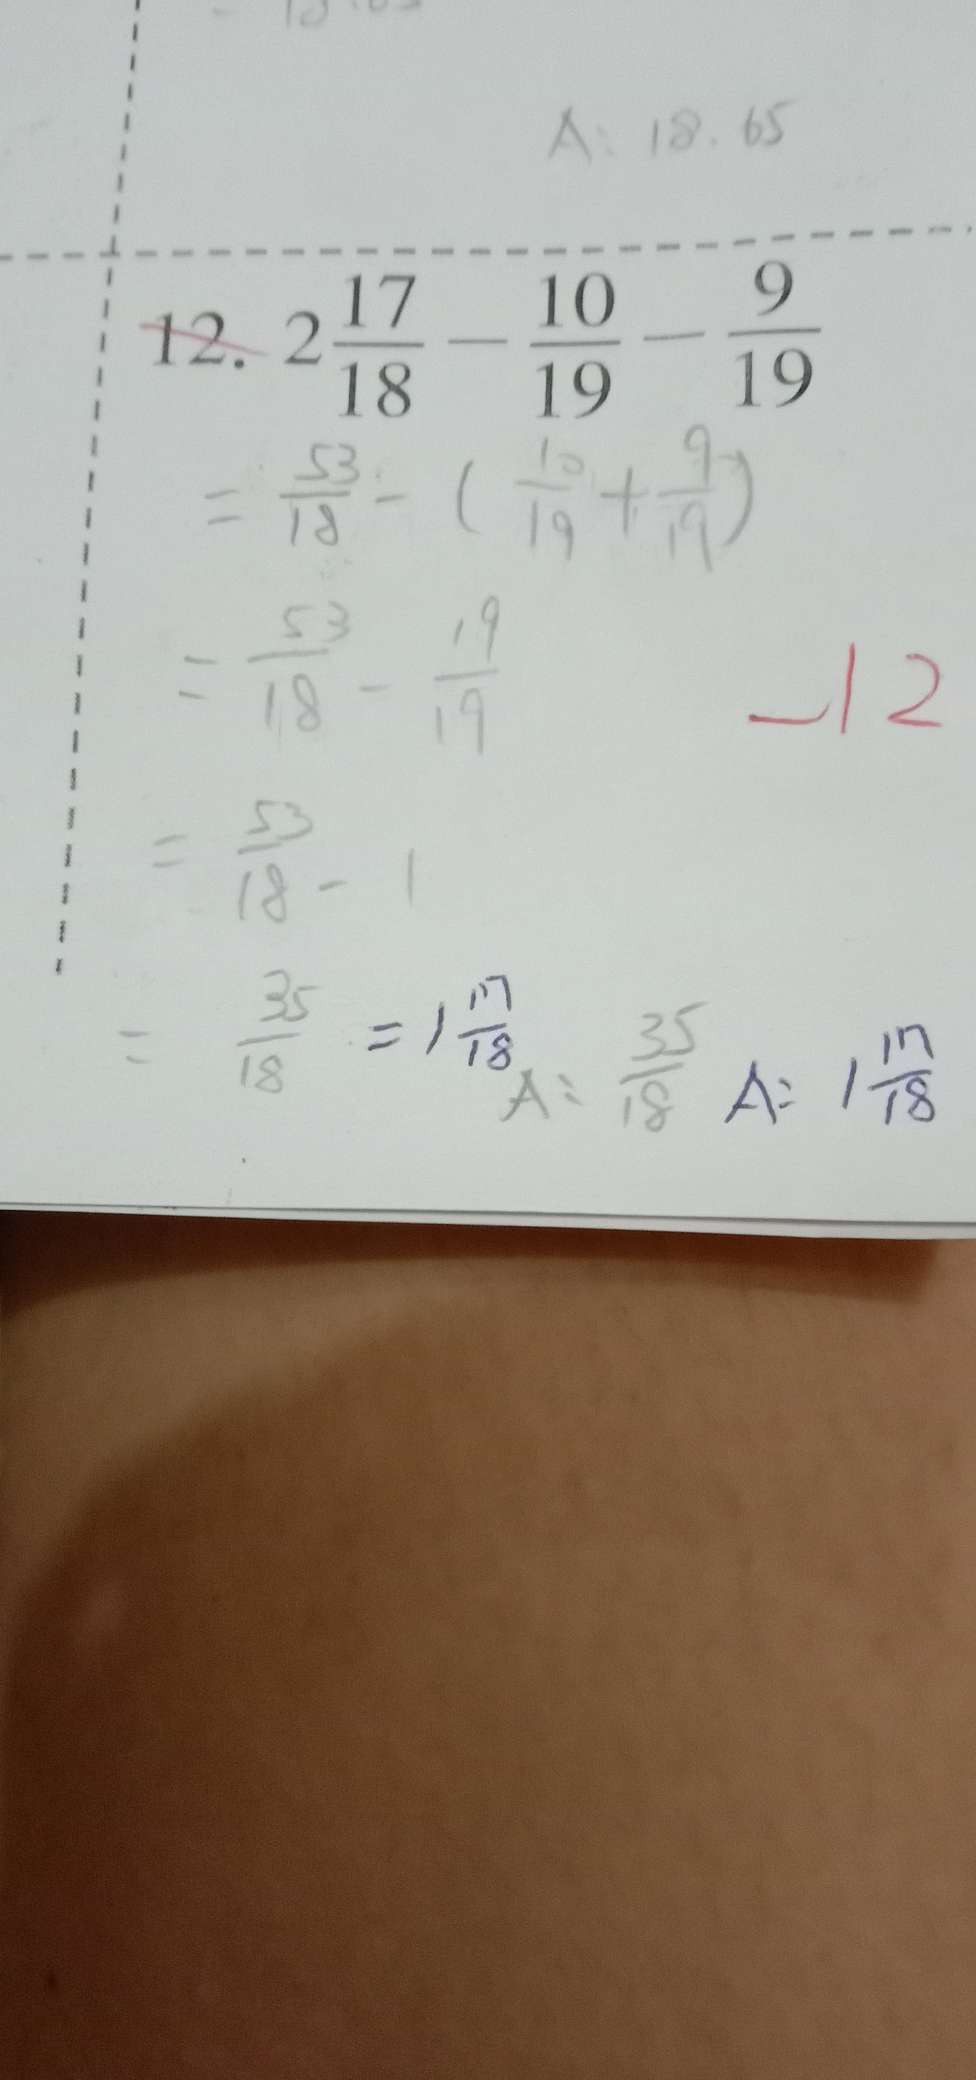 A: 18.65
12. 2 17/18 − 10/19 − 9/19
= 53/18 − (10/19 + 9/19)
= 53/18 − 19/19
−12
= 53/18 − 1
= 35/18 = 1 17/18
A: 35/18 A: 1 17/18